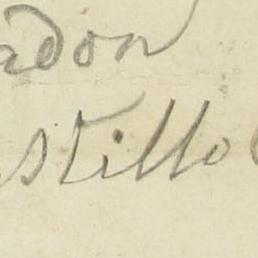 adon
stillo